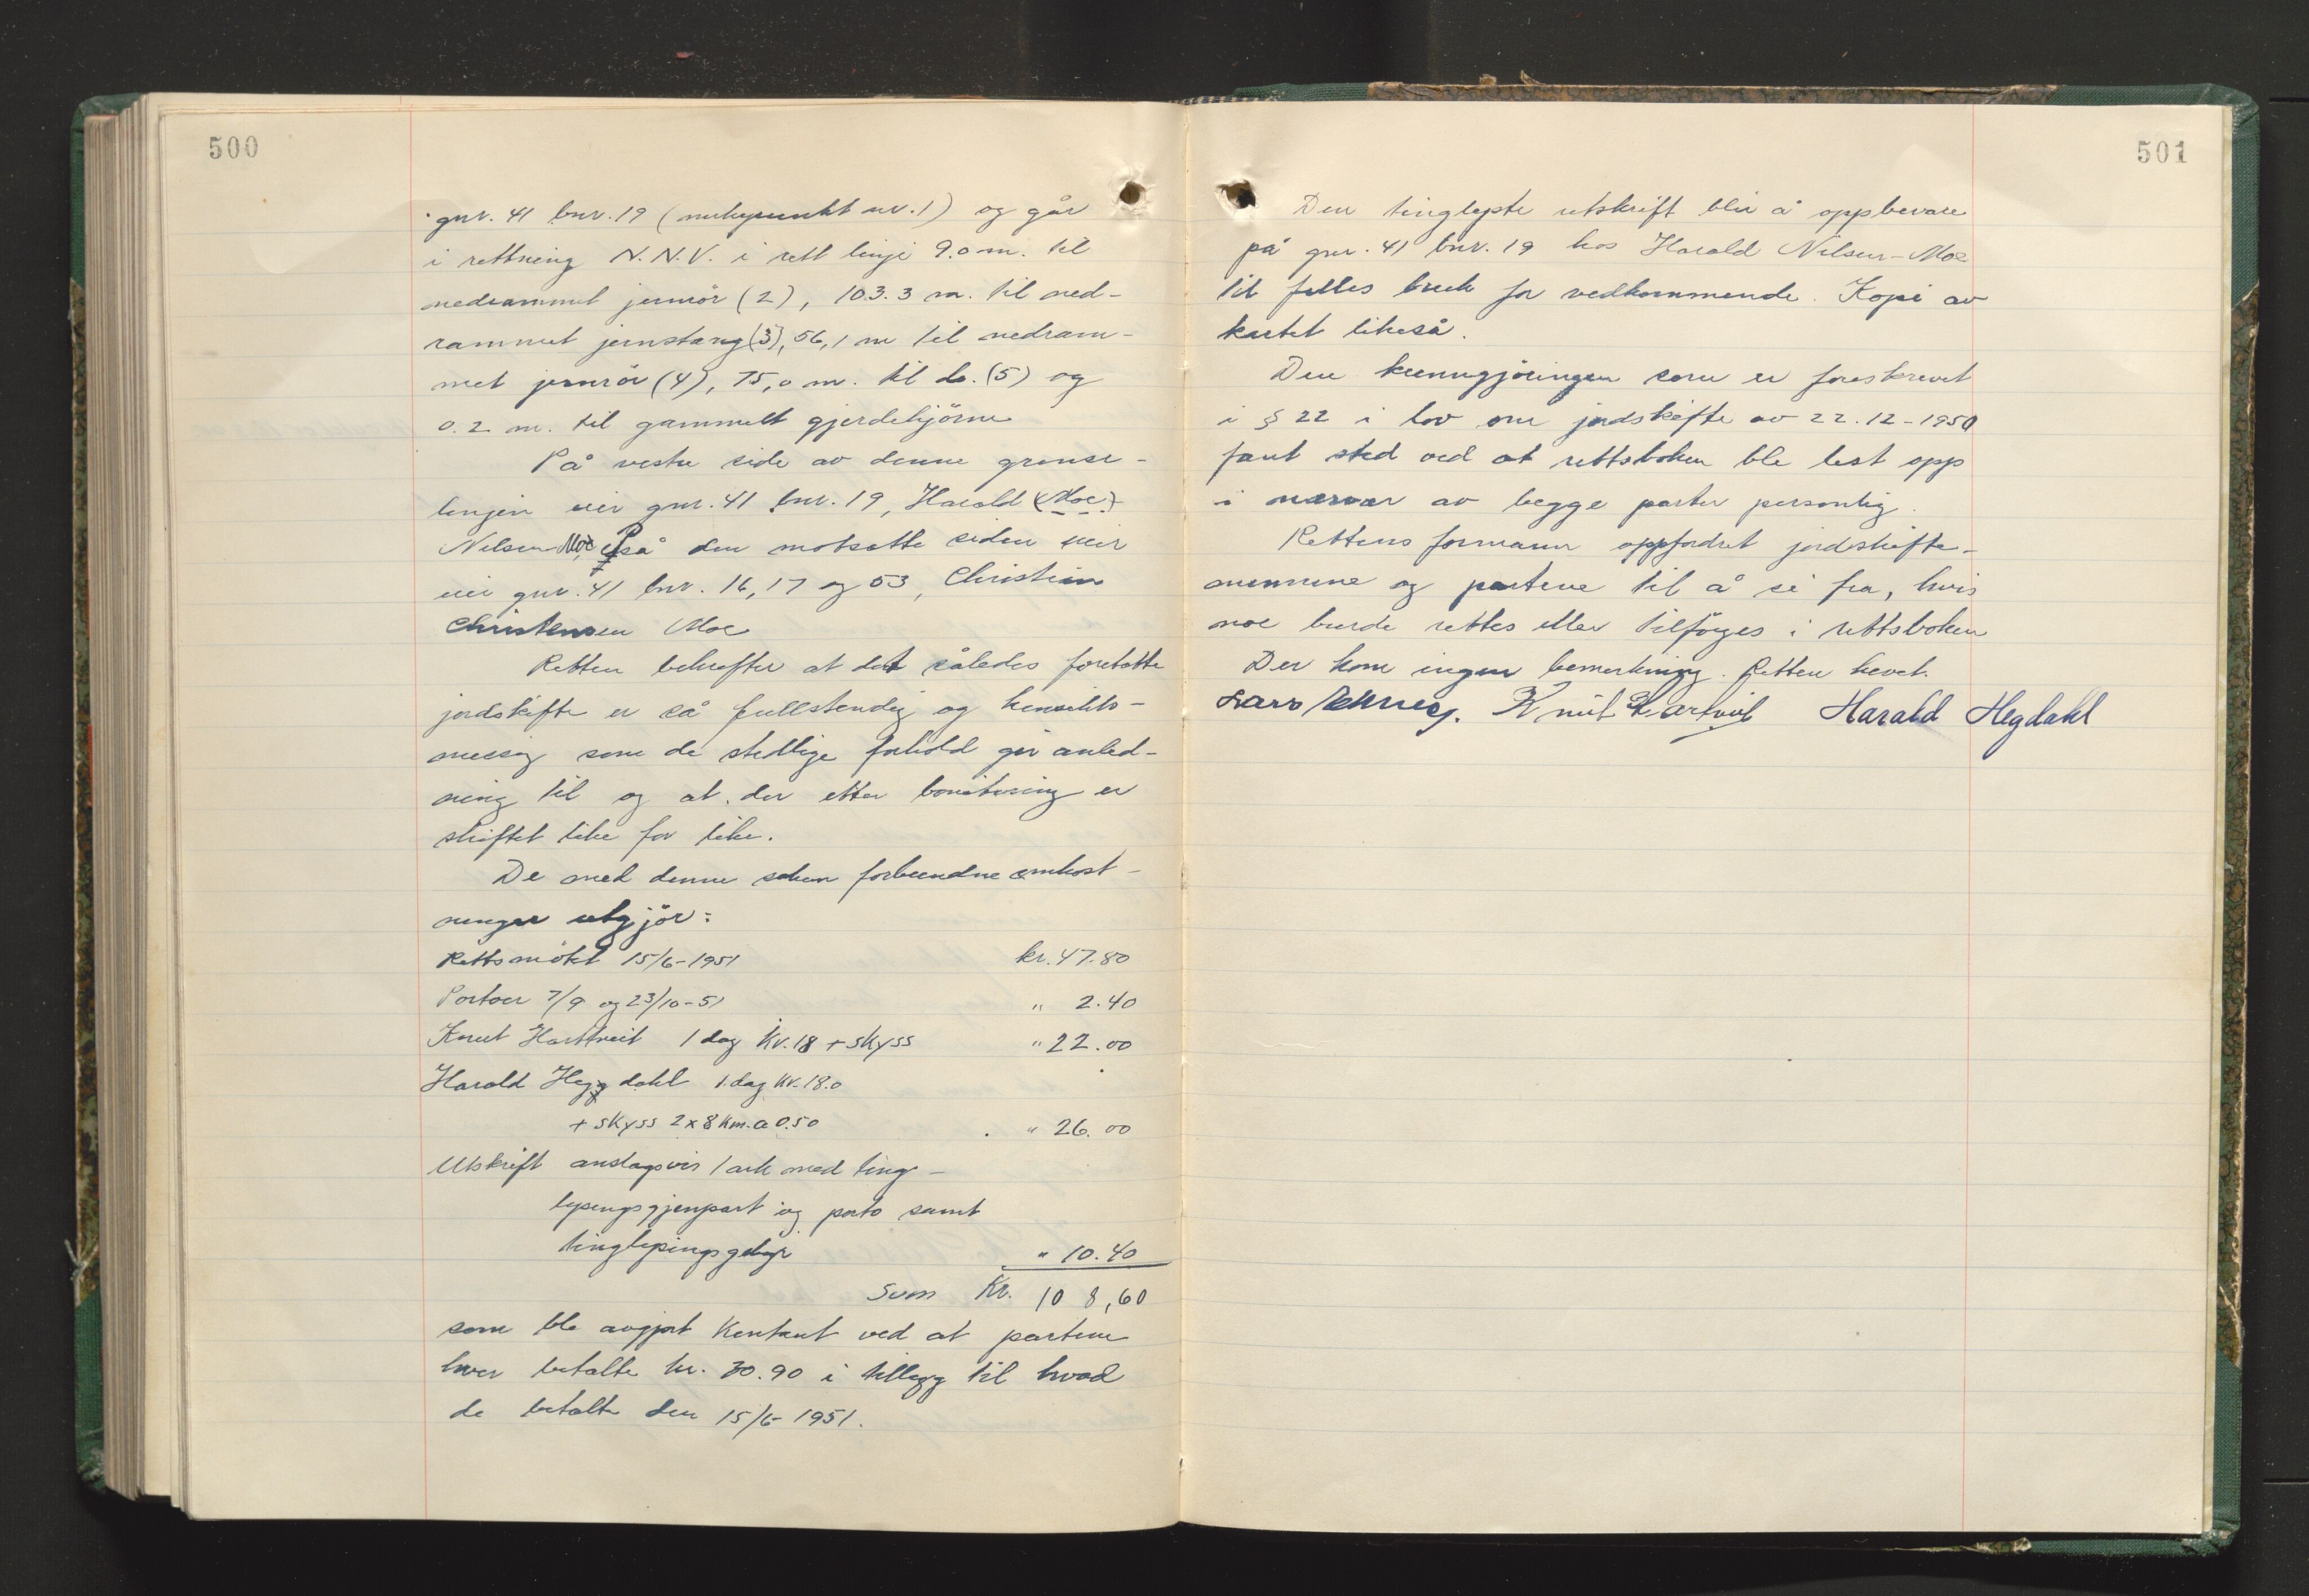 500
gnr. 41 bnr. 19 (merkepunkt nr. 1) og går
i rettning N.N.V. i rett linje 9.0 m. til
nedrammet jernrör (2), 10.3.3 m. til ned-
rammet jernstang (3), 56,1 m til nedram-
met jernrör (4), 75,0 m. til do. (5) og
0.2 m. til gammelt gjerdehjörne
På vestre side av denne grense-
linjen eier gnr. 41 bnr. 19, Harald (Moe)
Nilsen Moe, På den motsatte siden eier
eier gnr. 41 bnr. 16, 17 og 53, Christian
Christensen Moe
Retten bekrefter at det således foretatte
jordskifte er så fullstendig og hensikts-
messig som de stedlige forhold gir anled-
ning til og at der etter bonitering er
skiftet like for like.
De med denne saken forbundne omkost-
ninger utgjör:
Rettsmötet 15/6-1951 kr. 47.80
Portoer 7/9 og 23/10-51 " 2.40
Knut Hartveit 1 dag kr. 18 + skyss " 22.00
Harald Hegdahl 1. dag kr. 18.0
+ skyss 2 x 8 km. a 0.50 " 26.00
Utskrift anslagsvis 1 ark med ting-
lysingsgjenpart og porto samt
tinglysingsgebyr " 10.40
Sum Kr. 108,60
som ble avgjort kontant ved at partene
hver betalte kr. 30.90 i tillegg til hvad
de betalte den 15/6-1951.
501
Den tinglyste utskrift blir å oppbevare
på gnr. 41 bnr. 19 hos Harald Nilsen-Moe
til felles bruk for vedkommende. Kopi av
kartet likeså.
Den kunngjöringen som er foreskrevet
i § 22 i lov om jordskifte av 22.12-1950
fant sted ved at rettsboken ble lest opp
i nærvær av begge parter personlig.
Rettens formann oppfordret jordskifte-
mennene og partene til å si fra, hvis
noe burde rettes eller tilföyes i rettsboken
Der kom ingen bemerkning. Retten hevet.
Lars Knut Hartveit Harald Hegdahl